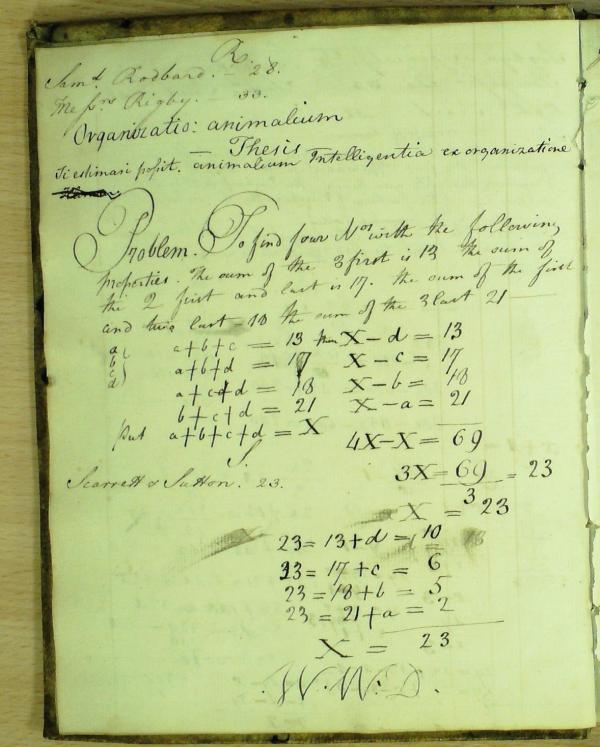 R.
Sam.l Rodbard. — 28.
Mess.rs Rigby. — 33.
Organizatio: animalium
— Thesis
Si estimari possit. animalium Intelligentia ex organizatione
Problem. To find four Nos with the following
properties. The sum of the 3 first is 13 the sum of
the 2 first and last is 17. the sum of the first
and two last – 18 the sum of the 3 last 21
a b c d a+b+c = 13 then X – d = 13
a+b+d = 17 X – c = 17
a+c+d = 18 X – b = 18
b+c+d = 21 X – a = 21
put a+b+c+d = X 4X – X = 69
S.
3X = 69 = 23
3
Scarrett & Sutton. 23.
X = 23
23 = 13+d = 10
23 = 17+c = 6
23 = 18+b = 5
23 = 21+a = 2
X = 23
W.W.D.